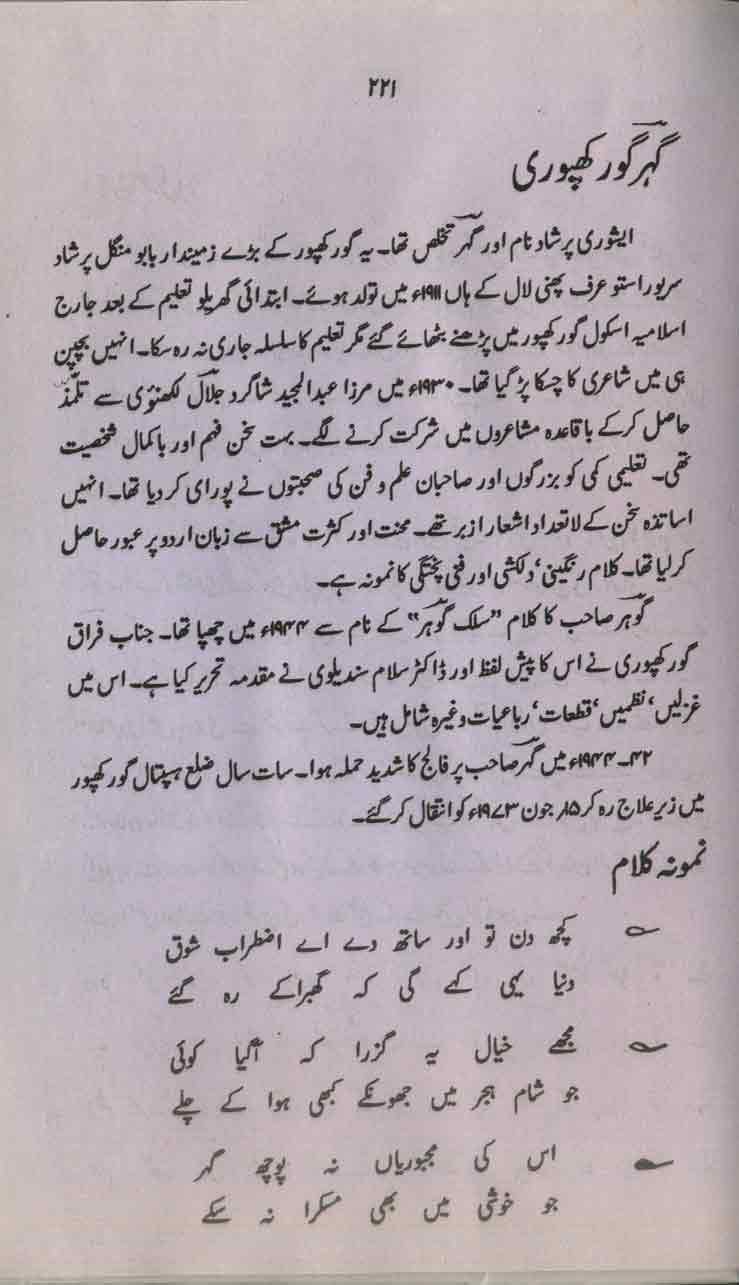 ۲۲۱
گہر گورکھپوری
ایشوری پرشاد نام اور گہر تخلص تھا۔ یہ گورکھپور کے بڑے زمیندار بابو منگل پرشاد
سریوراستو عرف پھنی لال کے ہاں ۱۹۱۱ء میں تولد ہوئے۔ ابتدائی گھریلو تعلیم کے بعد جارج
اسلامیہ اسکول گورکھپور میں پڑھنے بٹھائے گئے مگر تعلیم کا سلسلہ جاری نہ رہ سکا۔ انہیں بچپن
ہی میں شاعری کا چسکا پڑ گیا تھا۔ ۱۹۳۰ء میں مرزا عبدالمجید شاگرد جلال لکھنوی سے تلمّذ
حاصل کر کے باقاعدہ مشاعروں میں شرکت کرنے لگے۔ بہت سخن فہم اور باکمال شخصیت
تھی۔ تعلیمی کمی کو بزرگوں اور صاحبان علم و فن کی صحبتوں نے پورای کر دیا تھا۔ انہیں
اساتذہ سخن کے لاتعداد اشعار ازبر تھے۔ محنت اور کثرت مشق سے زبان اردو پر عبور حاصل
کر لیا تھا۔ کلام رنگینی‘ دلکشی اور فنی پختگی کا نمونہ ہے۔
گوہر صاحب کا کلام ”سلک گوہر“ کے نام سے ۱۹۴۴ء میں چھپا تھا۔ جناب فراق
گورکھپوری نے اس کا پیش لفظ اور ڈاکٹر سلام سندیلوی نے مقدمہ تحریر کیا ہے۔ اس میں
غزلیں‘ نظمیں‘ قطعات‘ رباعیات وغیرہ شامل ہیں۔
۴۲۔۱۹۴۴ء میں گہر صاحب پر فالج کا شدید حملہ ہوا۔ سات سال ضلع ہسپتال گورکھپور
میں زیر علاج رہ کر ۱۵ر جون ۱۹۷۳ء کو انتقال کر گئے۔
نمونہ کلام
کچھ دن تو اور ساتھ دے اے اضطراب شوق
دنیا یہی کہے گی کہ گھبرا کے رہ گئے
مجھے خیال یہ گزرا کہ آگیا کوئی
جو شام ہجر میں جھونکے کبھی ہوا کے چلے
اس کی مجبوریاں نہ پوچھ گہر
جو خوشی میں بھی مسکرا نہ سکے